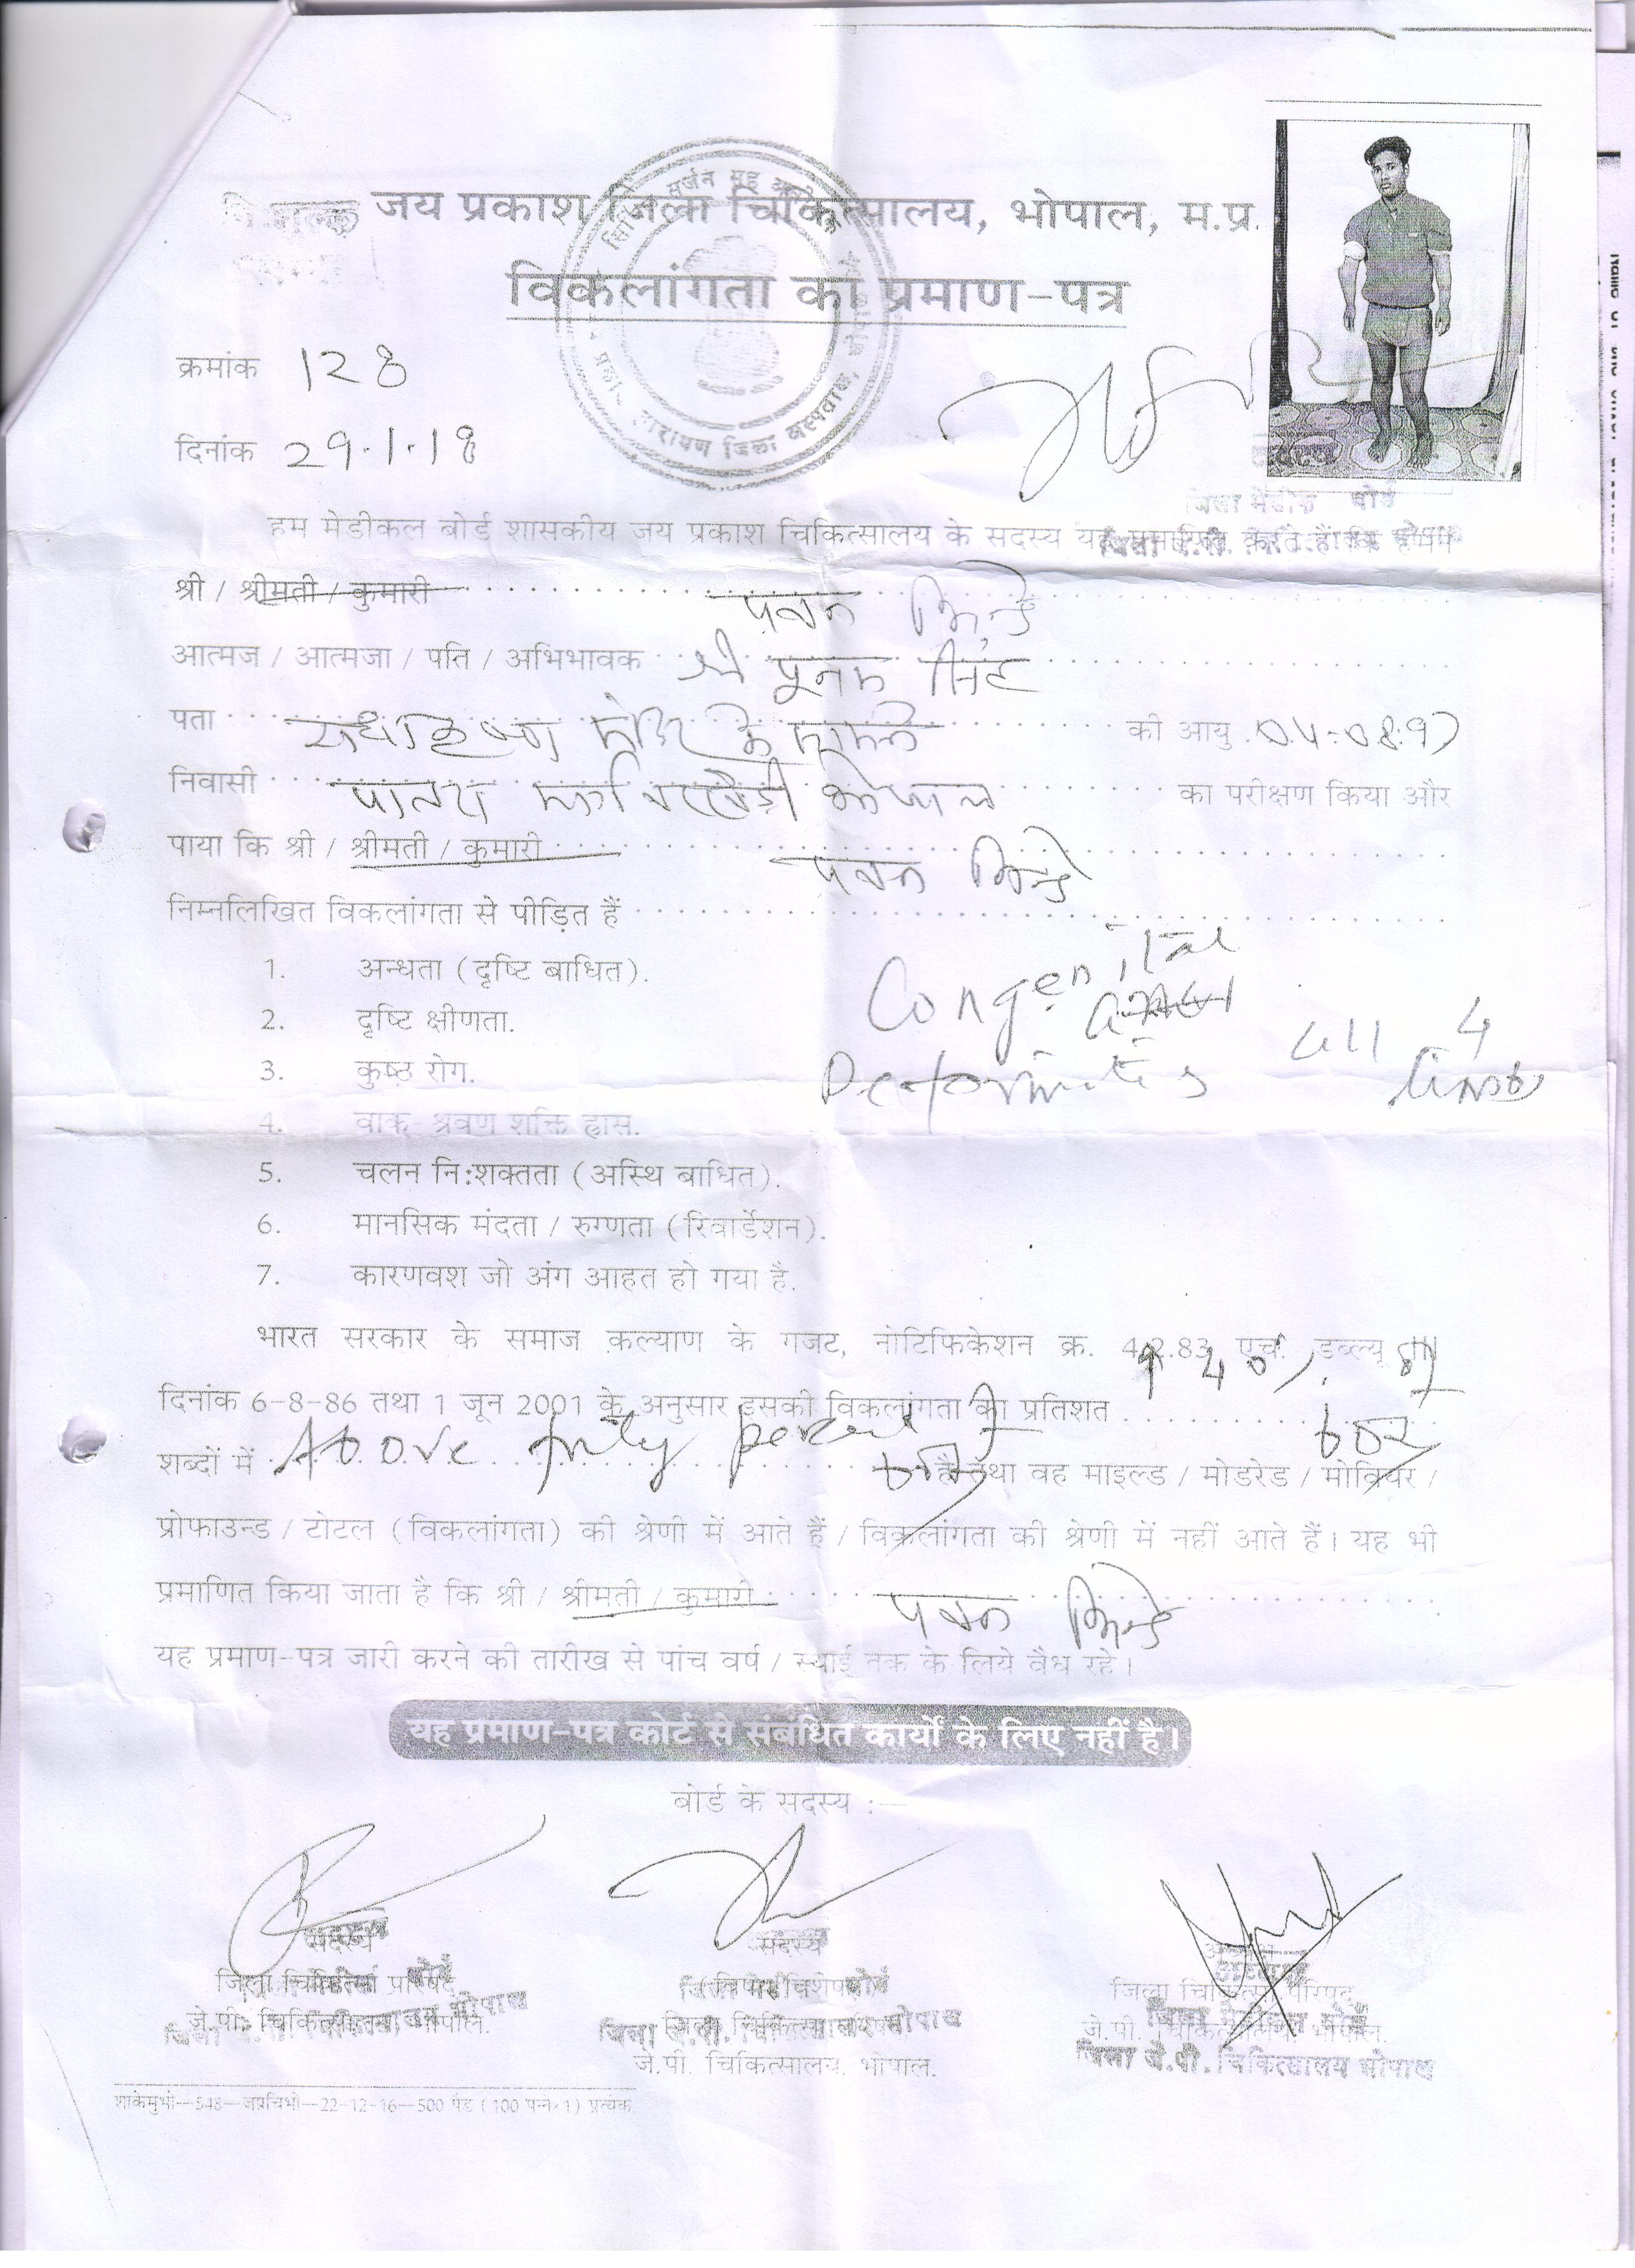 जय प्रकाश जिला चिकित्सालय, भोपाल, म.प्र.
विकलांगता का प्रमाण-पत्र
क्रमांक 128
दिनांक 29.1.18
हम मेडीकल बोर्ड शासकीय जय प्रकाश चिकित्सालय के सदस्य यह प्रमाणित करते हैं कि हमने
श्री / श्रीमती / कुमारी पवन
आत्मज / आत्मजा / पति / अभिभावक श्री पूनम सिंह
पता राधाकृष्ण मंदिर के सामने की आयु 04-08-97
निवासी भोपाल का परीक्षण किया और
पाया कि श्री / श्रीमती / कुमारी पवन
निम्नलिखित विकलांगता से पीड़ित हैं
1. अन्धता (दृष्टि बाधित).
2. दृष्टि क्षीणता.
3. कुष्ठ रोग.
4. वाक्-श्रवण शक्ति ह्रास.
5. चलन नि:शक्तता (अस्थि बाधित).
6. मानसिक मंदता / रुग्णता (रिटार्डेशन).
7. कारणवश जो अंग आहत हो गया है.
Congenital
Deformities all 4 limbs
भारत सरकार के समाज कल्याण के गजट, नोटिफिकेशन क्र. 4.2.83 एच. डब्ल्यू
दिनांक 6-8-86 तथा 1 जून 2001 के अनुसार इसकी विकलांगता का प्रतिशत 40%
शब्दों में Above forty percent है तथा वह माइल्ड / मोडरेड / मोवियर /
प्रोफाउन्ड / टोटल (विकलांगता) की श्रेणी में आते हैं / विकलांगता की श्रेणी में नहीं आते हैं। यह भी
प्रमाणित किया जाता है कि श्री / श्रीमती / कुमारी पवन
यह प्रमाण-पत्र जारी करने की तारीख से पांच वर्ष / स्थाई तक के लिये वैध रहे।
यह प्रमाण-पत्र कोर्ट से संबंधित कार्यों के लिए नहीं है।
बोर्ड के सदस्य :—
सदस्य सदस्य अध्यक्ष
जिला चिकित्सा परिषद, जिला चिकित्सा परिषद,
जे.पी. चिकित्सालय, भोपाल. जे.पी. चिकित्सालय, भोपाल.
जे.पी. चिकित्सालय, भोपाल.
जिला जे.पी. चिकित्सालय भोपाल
शाकेमुभो—548—जप्रचिभो—22-12-16—500 पेड (100 पन्ने 1) प्रत्येक